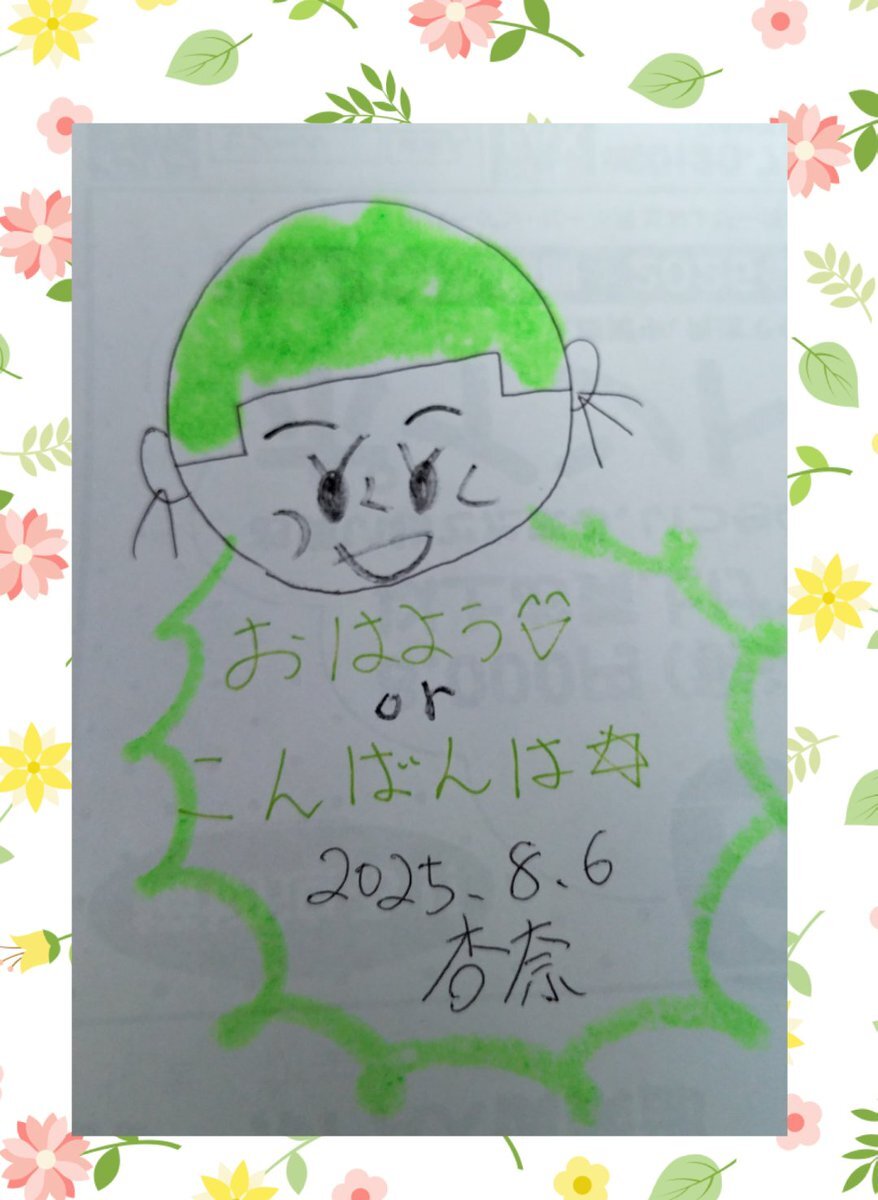 おはよう♡
or
こんばんは✡
2025.8.6
杏奈